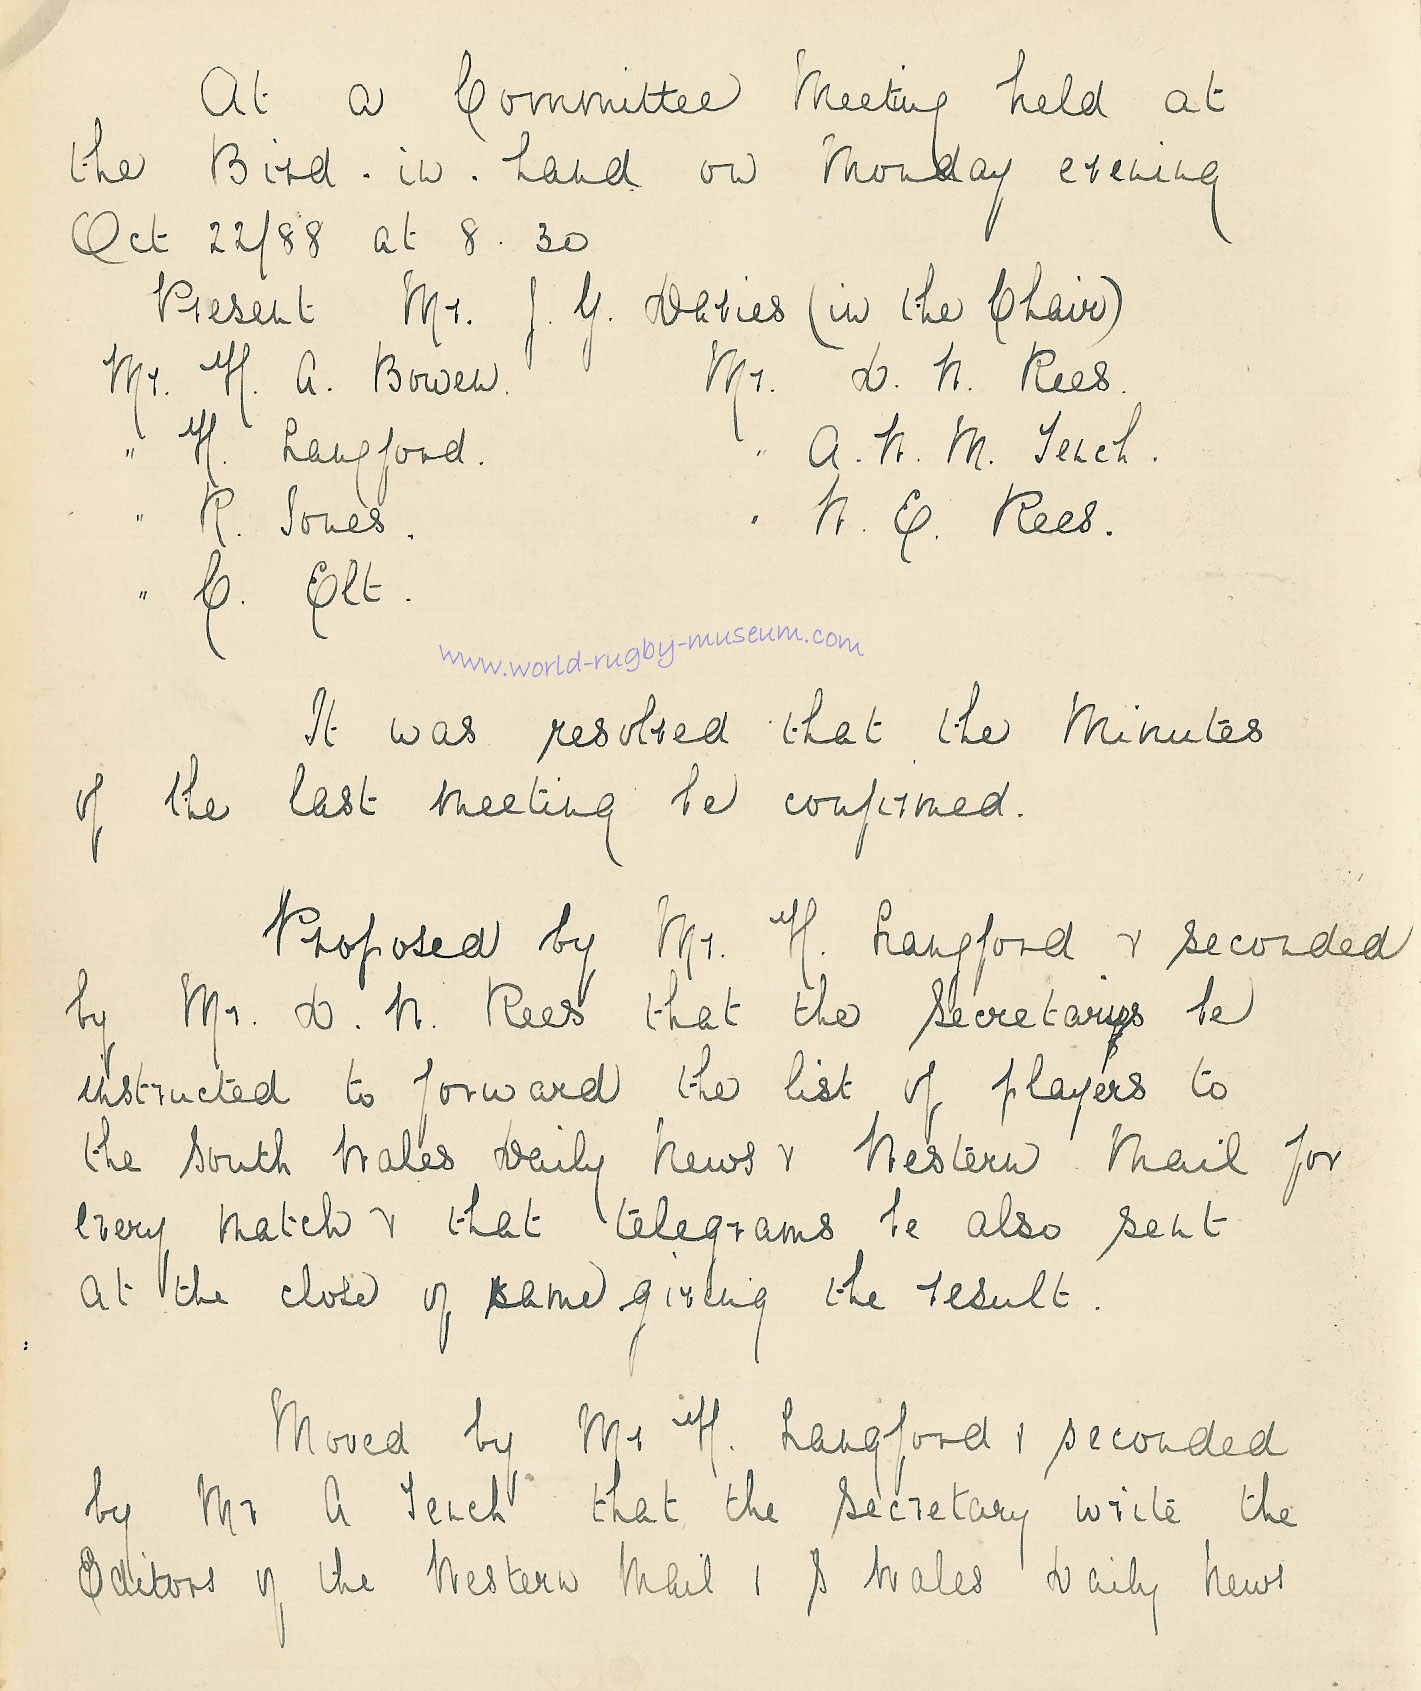 At a Committee Meeting held at
the Bird-in-hand on Monday evening
Oct 22/88 at 8.30
Present Mr. J. G. Davies (in the Chair)
Mr. H. A. Bowen. Mr. D. W. Rees.
" H. Langford. " A. W. M. Tench.
" R. Jones. " W. E. Rees.
" C. Elt.
www.world-rugby-museum.com
It was resolved that the Minutes
of the last meeting be confirmed.
Proposed by Mr. H. Langford & seconded
by Mr. D. W. Rees that the Secretarys be
instructed to forward the list of players to
the South Wales Daily News & Western Mail for
every match & that telegrams be also sent
at the close of same giving the result.
Moved by Mr H. Langford & seconded
by Mr A Tench that the Secretary write the
Editors of the Western Mail & S Wales Daily News